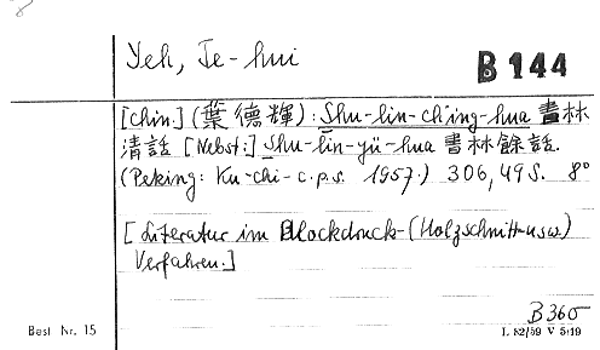 Yeh, Te-hui
B 144
[Chin.] (葉德輝): Shu-lin-ch'ing-hua 書林
清話 [Nebst:] Shu-lin-yü-hua 書林餘話.
(Peking: Ku-chi-c.p.s. 1957.) 306, 49 S. 8°
[Literatur im Blockdruck-(Holzschnitt-usw.)
Verfahren.]
B 360
Best Nr. 15
L 82/59 V 5:19